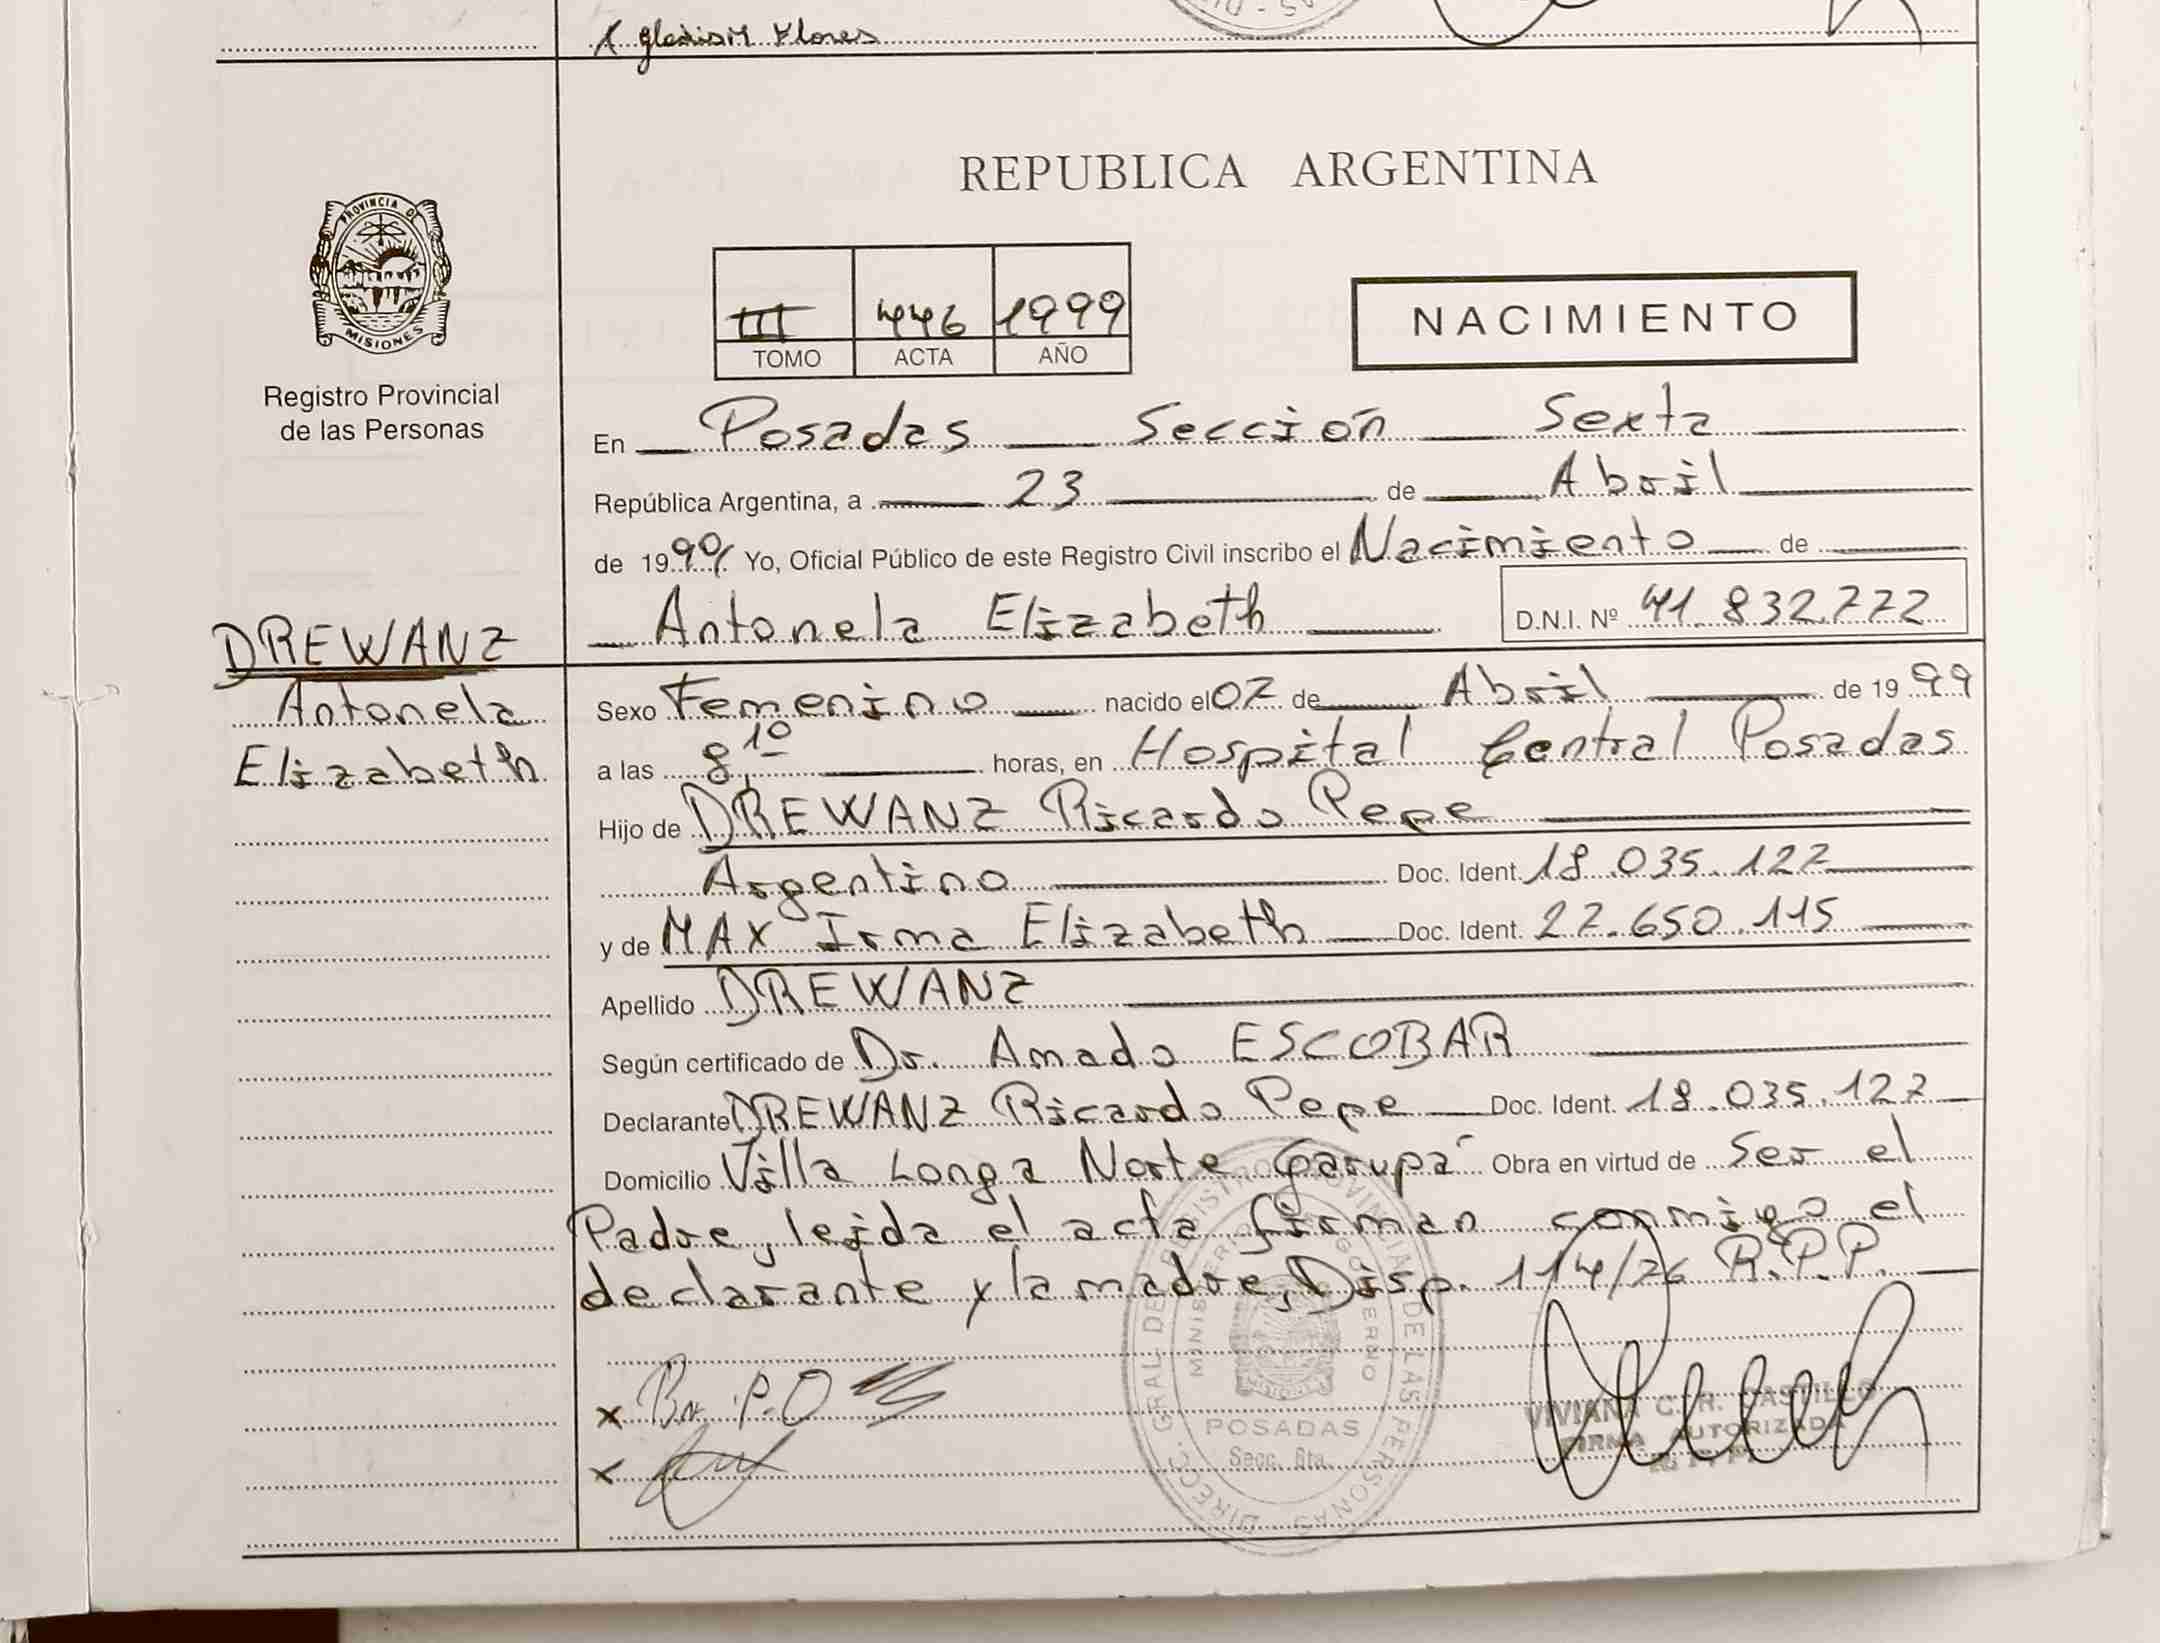 Flores
PROVINCIA DE
MISIONES
Registro Provincial
de las Personas
REPUBLICA ARGENTINA
III 446 1999
TOMO ACTA AÑO
NACIMIENTO
En Posadas Sección Sexta
República Argentina, a 23 de Abril
de 1999 Yo, Oficial Público de este Registro Civil inscribo el Nacimiento de
Antonela Elizabeth D.N.I. Nº 41.832.772
DREWANZ
Antonela
Elizabeth
Sexo Femenino nacido el 07 de Abril de 1999
a las 8,10 horas, en Hospital Central Posadas
Hijo de DREWANZ Ricardo Pepe
Argentino Doc. Ident. 18.035.127
y de MAX Irma Elizabeth Doc. Ident. 22.650.115
Apellido DREWANZ
Según certificado de Dr. Amado ESCOBAR
Declarante DREWANZ Ricardo Pepe Doc. Ident. 18.035.127
Domicilio Villa Longa Norte Garupá Obra en virtud de Ser el
Padre, leida el acta firman conmigo el
declarante y la madre, Disp. 114/76 R.P.P.
DIRECC. GRAL DE REGISTRO PROVINCIAL DE LAS PERSONAS
MINISTERIO GOBIERNO
POSADAS
Secc. 6ta.
VIVIANA C. R. CASTILLO
FIRMA AUTORIZADA